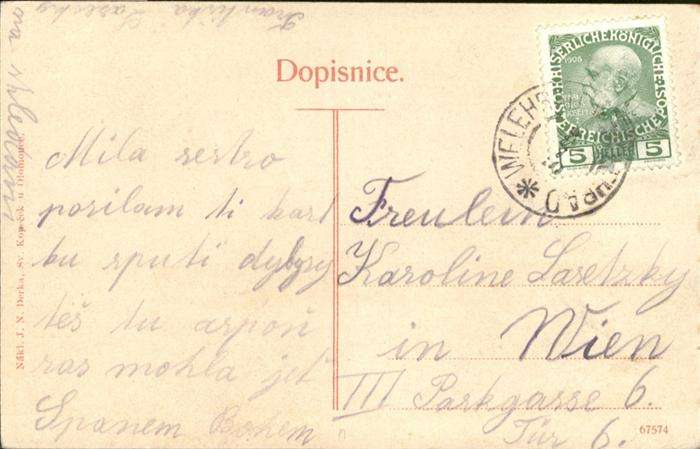 Dopisnice.
Mila sestro
posilam ti kart
ku sputi dybysy
těš tu aspoň
ras mohla jeť
Spanem Bohem
Františka
Lasecky
Freulein
Karoline Lasetzky
in Wien
III Parkgasse 6.
Tür 6.
KAISERLICHE KÖNIGLICHE
ÖSTERREICHISCHE
1908
5 5
WELEHRAD
Nákl. J. N. Derka, Sv. Kopeček u Olomouce
67574